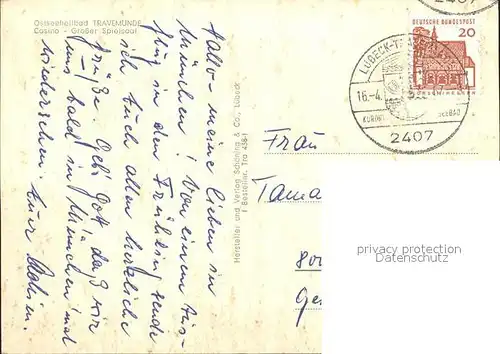 Ostseeheilbad TRAVEMÜNDE
Casino - Großer Spielsaal
Hallo - meine lieben in
München! Von einem Aus-
flug in den Frühling sende
ich Euch allen herzliche
Grüße. Geb' Gott daß wir
uns bald in München mal
wiedersehen. Eure
Hersteller und Verlag Schöning & Co., Lübeck
Bestellnr. Tra
DEUTSCHE BUNDESPOST
20
LÜBECK-TRAVEMÜNDE
16.-4.
KURORT
SEEBAD
2407
2407
Frau
Tama
800
Ge
privacy protection
DanSamariter.